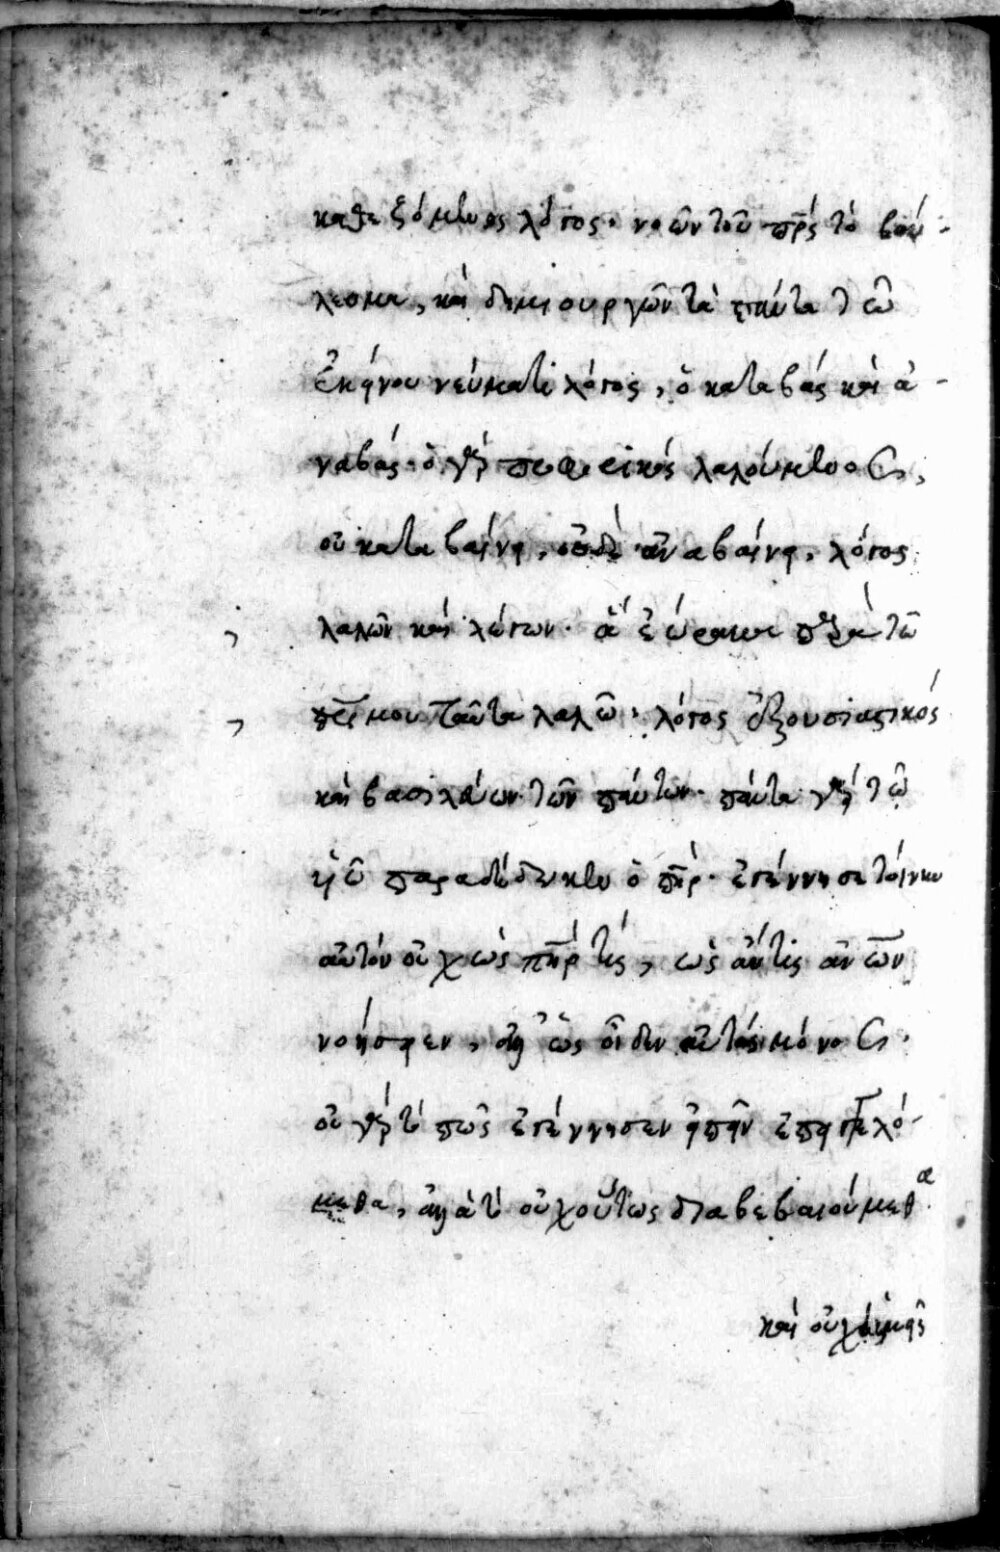 καθεζόμενος λόγος· νοῶν τοῦ πρς τὸ βού-
λεσμα, καὶ δημιουργῶν τὰ πάντα τῶ
ἐκείνου νεύματι λόγος, ὁ καταβὰς καὶ ἀ-
ναβάς· ὁ γὰρ προφορικὸς λαλούμενος,
οὐ καταβαίνει, οὐδὲ ἀναβαίνει, λόγος
λαλῶν καὶ λέγων· ἃ ἑώρακα παρὰ τῶ
πρι μου ταῦτα λαλῶ· λόγος ἐξουσιαστικός
καὶ βασιλεύων τῶν πάντων· πάντα γὰρ τῶ
υἱῶ παραδέδωκεν ὁ πηρ· ἐγέννησε τοίνυν
αὐτὸν οὐχ ὡς πηρ τίς, ὡς ἄν τις ανων
νοήσειεν, ἀλλ' ὡς οἶδεν αὐτὸς μόνος·
οὐ γὰρ τὸ πῶς ἐγέννησεν εἰπεῖν ἐπαγγελό-
μεθα, ἀλλὰ τὸ οὐχ οὕτως διαβεβαιούμεθα
καὶ οὐχ ἡμεῖς